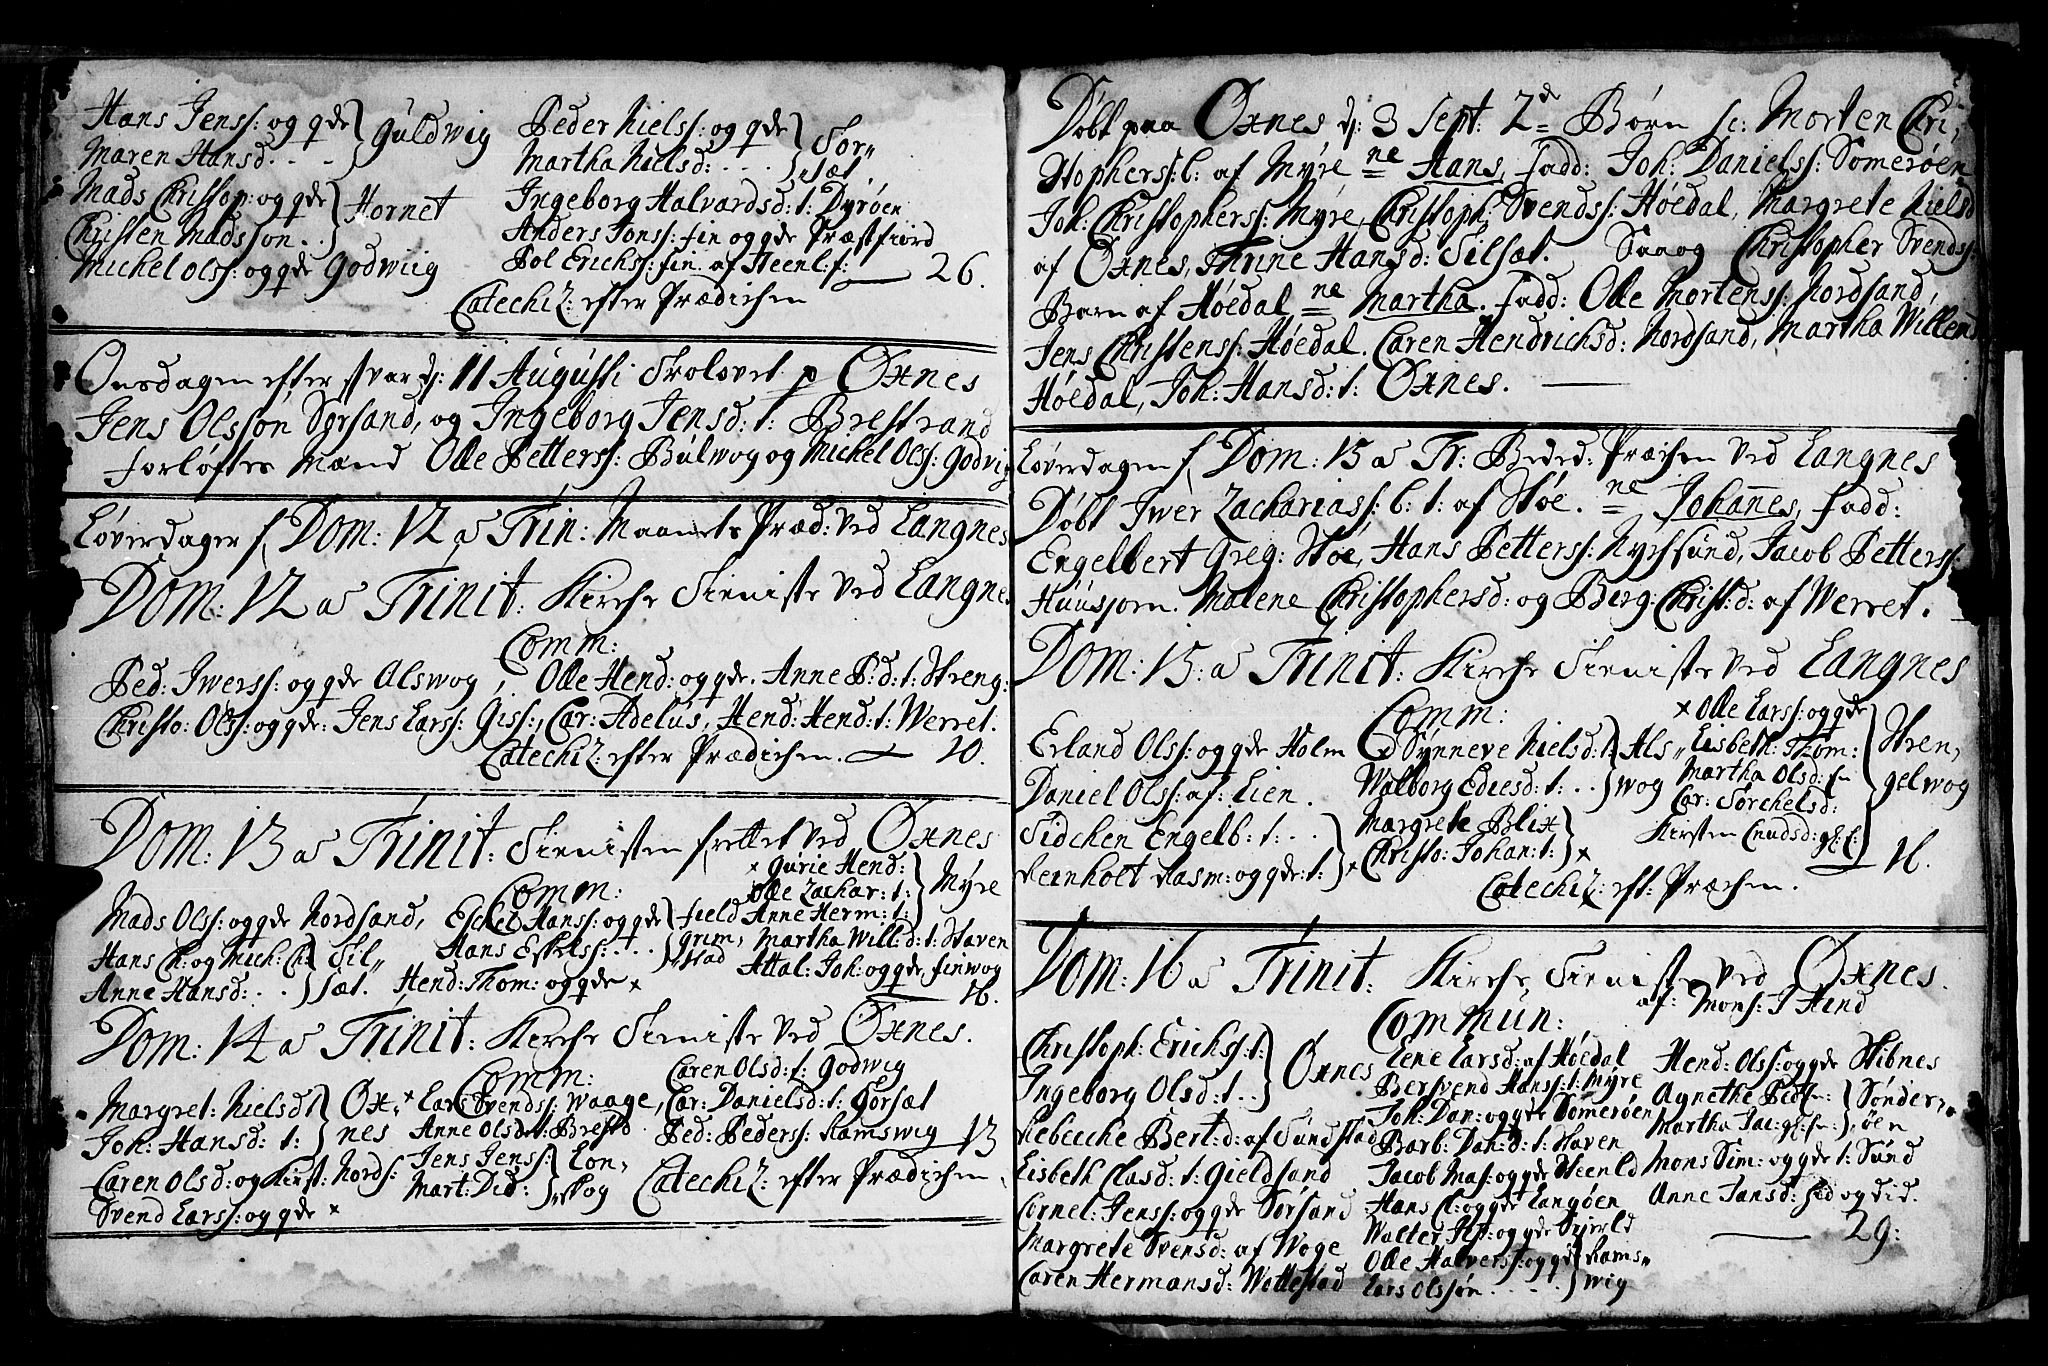 Hans Jenss: og qde } Guldwig
Maren Hansd. . . }
Mads Christop: og qde } Hornet
Christen Madsson . . }
Michel Olss: og qde Godwiig
Peder Nielss: og qde } Sor„
Martha Nielsd: . . . } sæt
Ingeborg Halvardsd: t: Dyrøen
Anders Jonss: fin og qde Præstfiord
Pol Erichss: fin. af Steenl: f: — 26.
Catechiz: efter Prædichen
Onsdagen efter dj: 11 Augusti Trolovet p Øxnes
Jens Olsson Sørsand, og Ingeborg Jensd: t: Brestrand
forløftes Mænd Olle Petterss: Bulwog og Michel Olss: Godvig
Løverdagen f Dom: 12 a Trin: Maanets Præd: Ved Langnes
Dom: 12 a Trinit: Kirche Tieniste Ved Langnes
Comm:
Ped: Iwerss: og qde Alswog, Olle Hend: og qde. Anne P:d: t: Streng:
Christo: Olss: og qde: Jens Larss: Giss:, Car: Adelus, Hend: Hend: t: Werret.
Catechiz: efter Prædichen. — 20.
Dom: 13 a Trinit: Tienisten forrettet Ved Øxnes
Comm:
Mads Olss: og qde Nordsand,
Hans Ch: og Mich: Ch: } Sil„
Anne Hansd: . . } sæt.
Eschel Hanss: og qde } field
Hans Eskelss: . . . } grim, stad
Hend: Thom: og qde x
x Gurie Hend: }
Olle Zachar: t: } Myre
Anne Herm: t: }
Martha Will: d: t: Staven
Attal: Joh: og qde, finwog
16.
Dom: 14 a Trinit: Kirche Tieniste Ved Øxnes.
Comm:
Margret: Nielsd t } Øx„
Joh: Hansd: t: } nes
Caren Olsd: og Kirst: Nords:
Svend Larss: og qde x
x Lars Svendss: Waage,
Anne Olsd: t: Brestd
Jens Jenss: } Lon„
Mart: Did: } skog
Caren Olsd: t: Godwig
Car: Danielsd: t: Gorsæt
Ped: Pederss: Ramswig 13
Catechiz: efter Prædichen.
Døbt paa Øxnes dj: 3 Sept: 2de Børn sc: Morten Chri„
stopherss: b: af Myre ne Hans, fadd: Joh: Danielss: Somerøen
Joh: Christopherss: Myre, Christoph: Svendss: Høedal, Margrete Nielsd
af Øxnes, Thrine Hansd: Silsæt. Saaog Christopher Svendss:
Barn af Høedal ne Martha. fadd: Olle Mortenss: Nordsand,
Jens Christenss: Høedal. Caren Hendrichsd: Nordsand, Martha Willems
Høedal, Joh: Hansd: t: Øxnes.
Løverdagen f Dom: 15 a Tr: Beded: Præchen Ved Langnes
Døbt Iwer Zachariass: b: t: af Støe. ne Johannes, fadd:
Engelbert Greg: Støe, Hans Petterss: Nychsund, Jacob Petterss:
Huusjorn. Malene Christophersd: og Berg: Christ: d: af Werret.
Dom: 15: a Trinit: Kirche Tieniste Ved Langnes
Comm:
Erland Olss: og qde Holm
Daniel Olss: af: Lien.
Sidchen Engelb: t: . . }
Reinholt Rasm: og qde: t: } x
Synneve Nielsd: t: } Als„
Walborg Ediesd: t: . . } wog
Margrete Blix }
Christo: Johan: t: } x
x Olle Larss: og qde
Lisbeth: Thom:
Martha Olsd: fin
Car: Torchelsd:
Kirsten Cnudsd: gl: f: } Stren„ gelwog
16.
Catechiz: eft: Præchen.
Dom: 16 a Trinit: Kirche Tieniste Ved Øxnes.
af: Mons: J Hend
Commun:
Christoph: Erichss: t: } Øxnes
Ingeborg Olsd: t. . }
Rebecche Bert: d: af Sundstad
Lisbeth Clasd: t: Gieldsand
Cornel: Jenss: og qde Sørsand
Margrete Svensd: af Woge
Caren Hermansd: Wottestad
Lene Larsd: af Høedal
Bersvend Hanss: t: Myre
Joh: Dan: og qde Somerøen
Barb: Dan: d: t: Staven
Jacob Mas: og qde Steenld
Hans Cl: og qde Langøen
Walter Jsp: og qde
Olle Halverss: og qde } Rams„
Lars Olssøn . . . . } wig
Hend: Olss: og qde Stibnes
Agnethe Ped: } Sønder„
Martha Jac: gl: f: } øen
Mons Sim: og qde t: Sund
Anne Jansd: sid og did.
29: